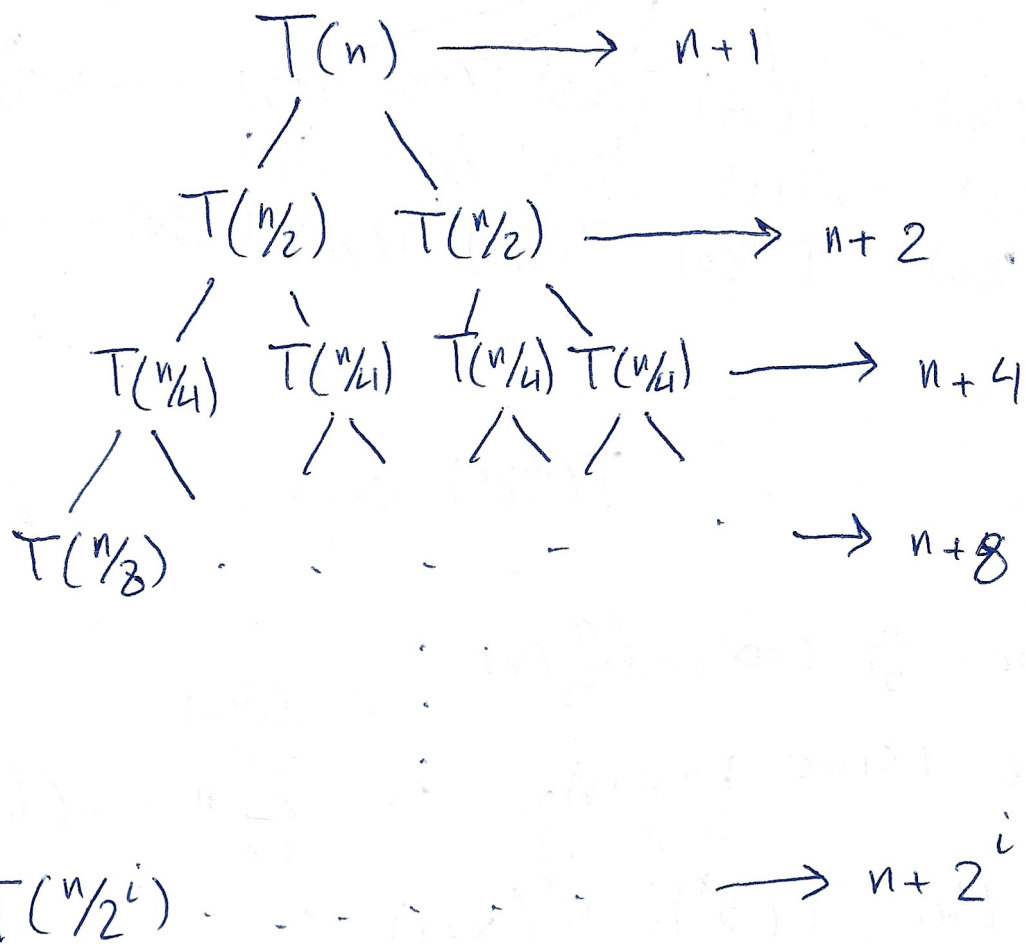 T(n) → n+1
T(n/2) T(n/2) → n+2
T(n/4) T(n/4) T(n/4) T(n/4) → n+4
T(n/8) . . . - . → n+8
T(n/2^i) . . . . . . → n+2^i